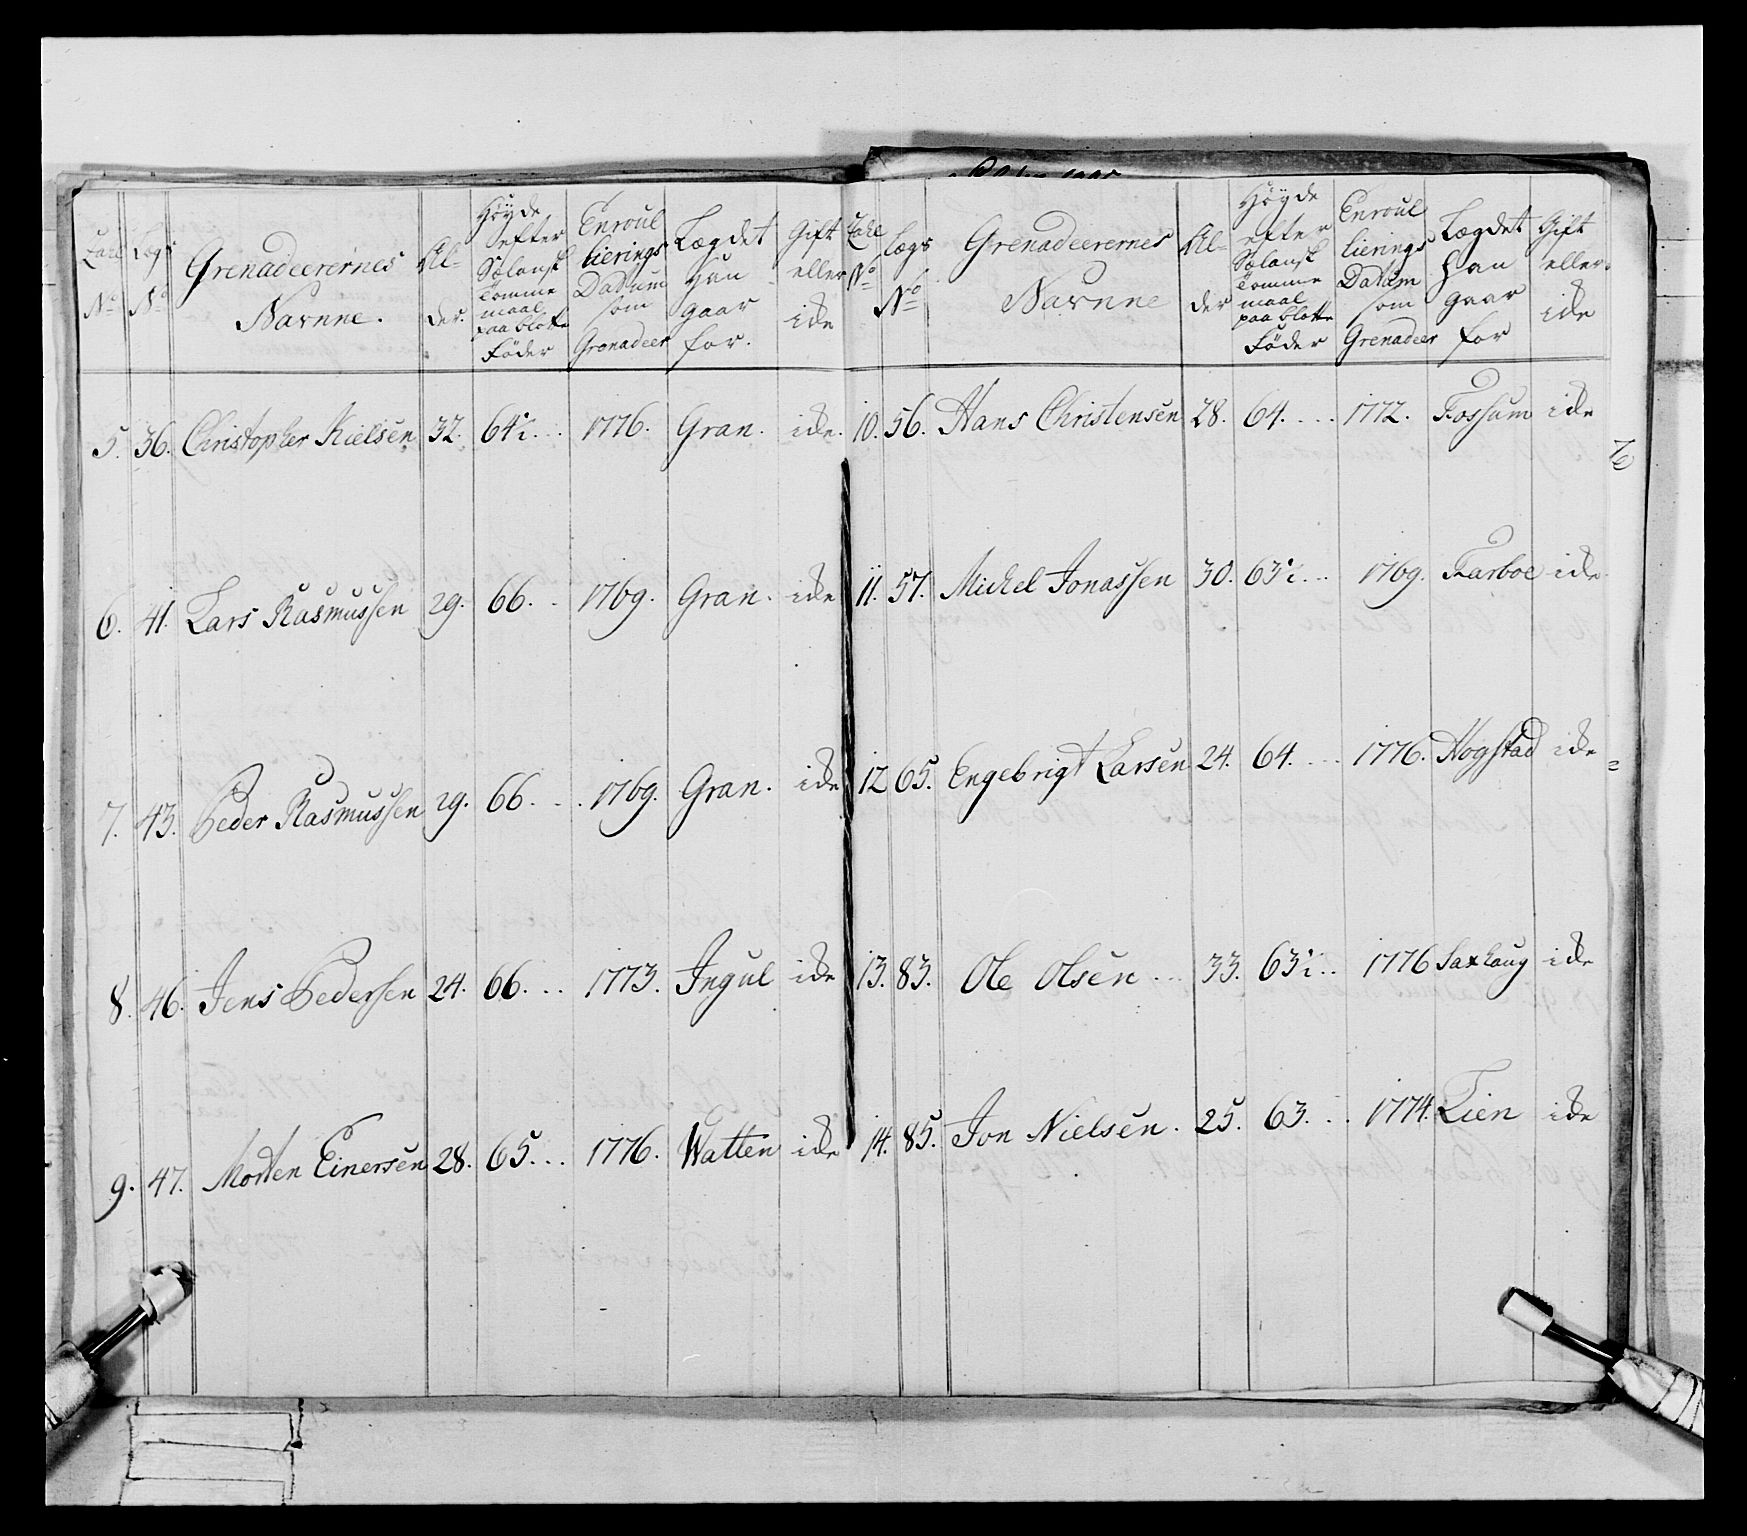 Zahl N° | Lægs N° | Grenadeerernes Navnne. | Al- der. | Høyde efter Sælansk Tomme maal paa blotte Føder | Enroullierings Datum som Grenadeer | Lægdet han gaar for. | Gift eller ide
5. 36. Christopher Kielsen 32. 64½... 1776. Gran. ide.
6. 41. Lars Rasmussen 29. 66.. 1769. Gran. ide
7. 43. Peder Rasmussen 29. 66... 1769. Gran. ide
8. 46. Jens Pedersen 24. 66... 1773. Ingul ide
9. 47. Morten Einersen 28. 65... 1776. Watten ide
Zahl N° | Lægs N° | Grenadeerernes Navnne | Al- der | Høyde efter Sælansk Tomme maal paa blotte Føder | Enroullierings Datum som Grenadeer | Lægdet han gaar for | Gift eller ide
10. 56. Hans Christensen 28. 64.... 1772. Fossum ide
11. 57. Michel Jonassen 30. 63½... 1769. Farboe ide
12 65. Engebrigt Larsen 24. 64.... 1776. Hogstad ide
13. 83. Ole Olsen... 33. 63½.. 1776 Saxhaug ide
14. 85. Jon Nielsen. 25. 63... 1774. Lien ide